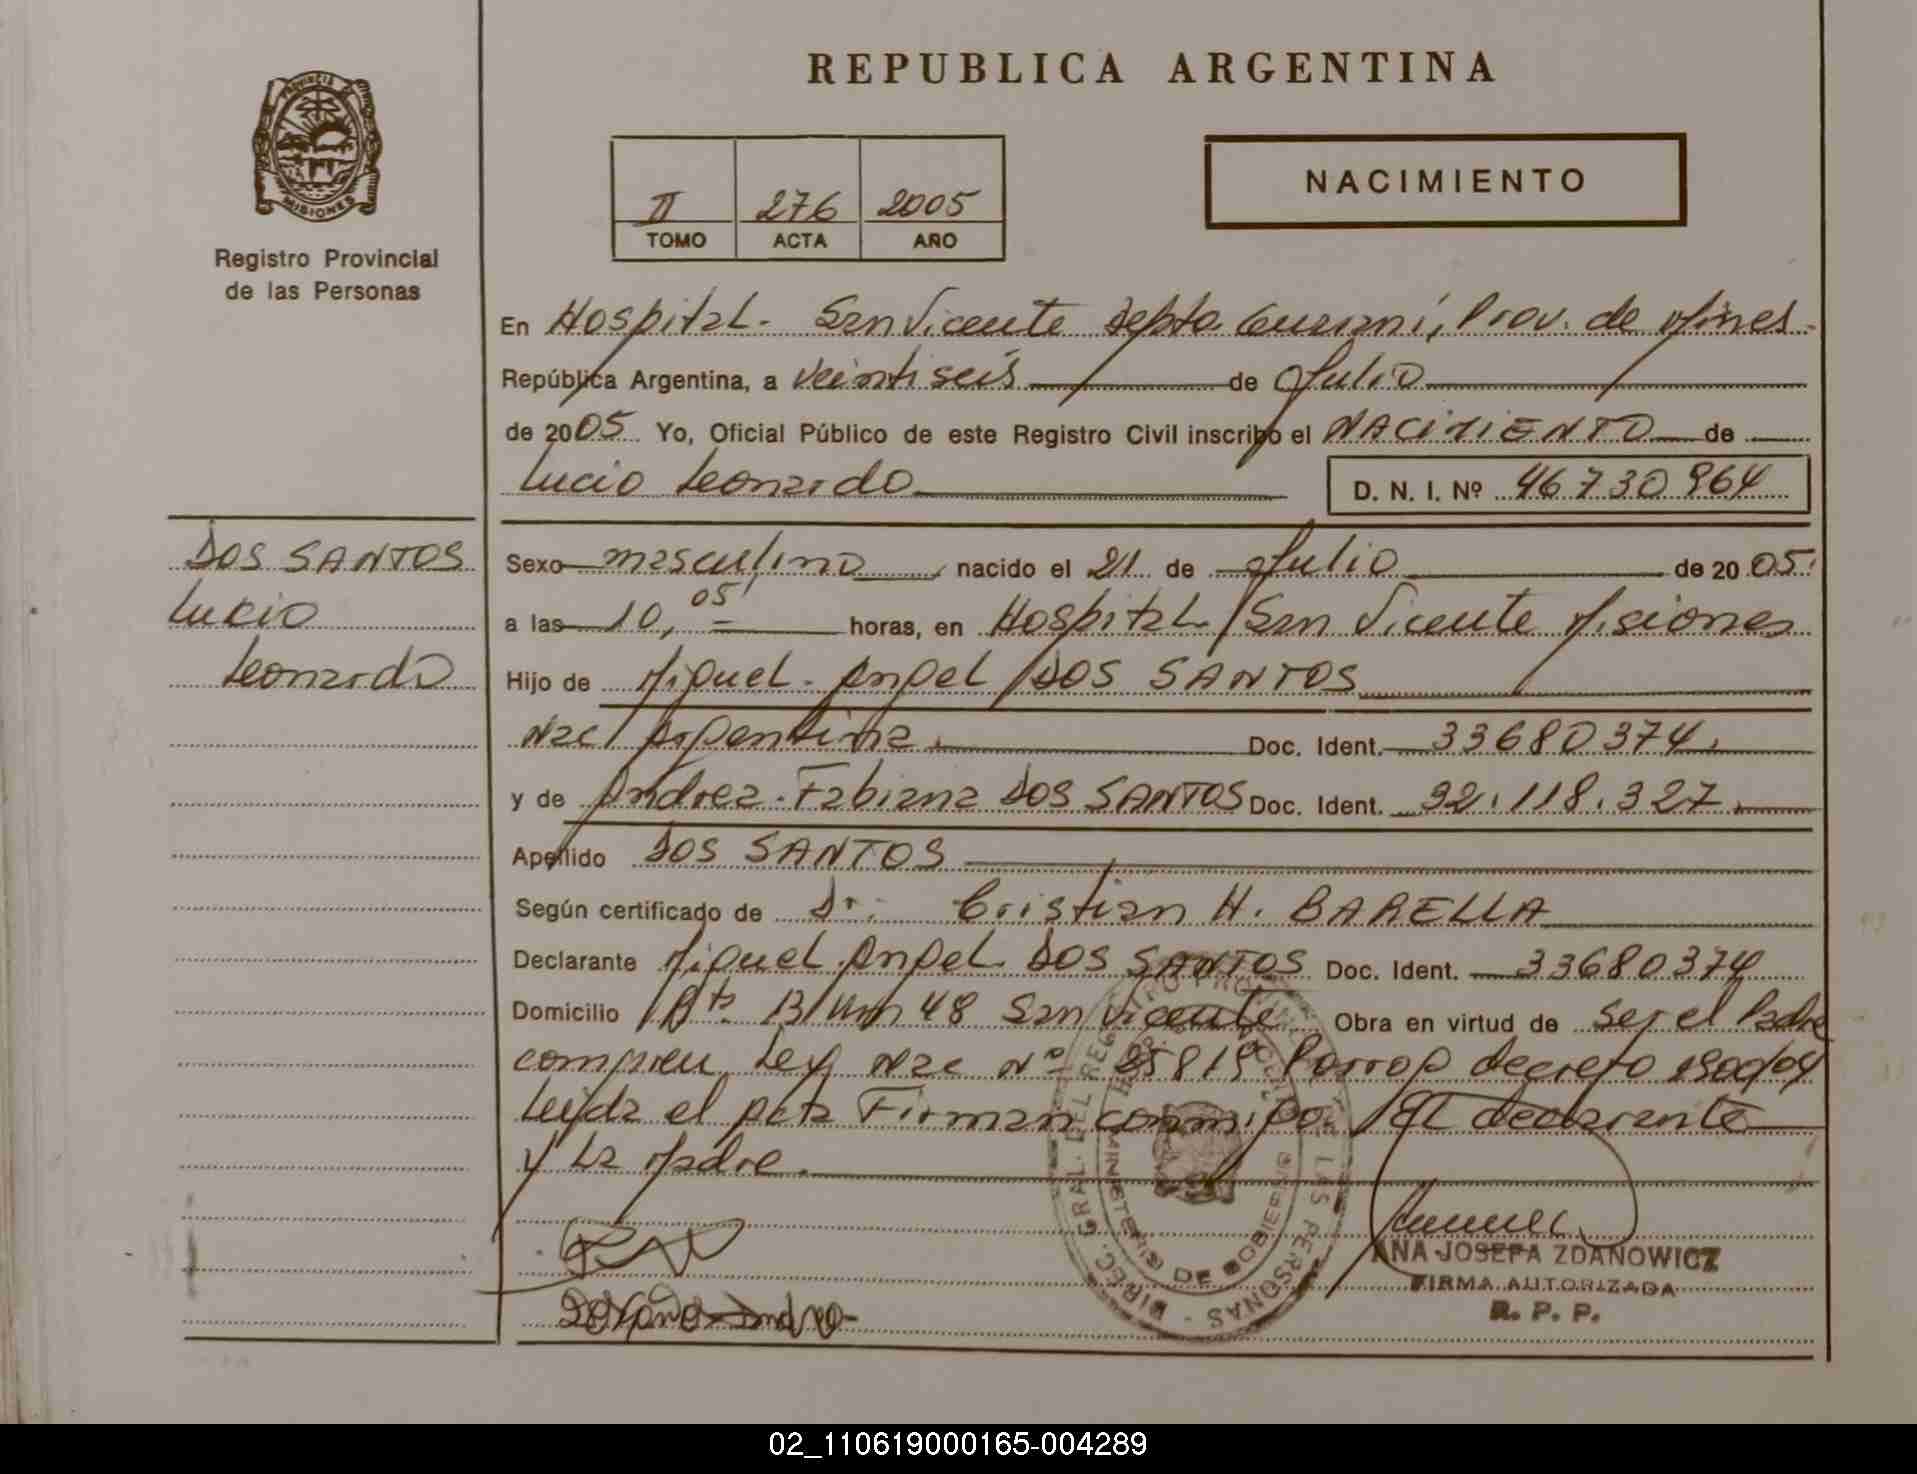 REPUBLICA ARGENTINA
PROVINCIA DE
MISIONES
Registro Provincial
de las Personas
II 276 2005
TOMO ACTA AÑO
NACIMIENTO
En Hospital - San Vicente Depto. Guaraní, Prov. de Mines.
República Argentina, a veintiseis de Julio
de 2005 Yo, Oficial Público de este Registro Civil inscribo el NACIMIENTO de
Lucio Leonardo D. N. I. Nº 46730964
DOS SANTOS
Lucio
Leonardo
Sexo masculino, nacido el 21 de Julio de 2005.
a las 10,05 horas, en Hospital San Vicente Misiones
Hijo de Miguel Angel DOS SANTOS
Nac Argentina. Doc. Ident. 33680374.
y de Andrea Fabiana DOS SANTOS Doc. Ident. 92.118.327.
Apellido DOS SANTOS
Según certificado de Dr. Cristian H. BARELLA
Declarante Miguel Angel DOS SANTOS Doc. Ident. 33680374
Domicilio Rta. 13 Km 48 San Vicente Obra en virtud de ser el Padre
Ley Nac Nº 25819 Prorrog decreto 1900/04
Leida el acta Firman conmigo El declarante
y La Madre.
DIREC. GRAL. DEL REGISTRO PROVINCIAL DE LAS PERSONAS
MINISTERIO DE GOBIERNO
ANA JOSEFA ZDANOWICZ
FIRMA AUTORIZADA
R. P. P.
02_110619000165-004289